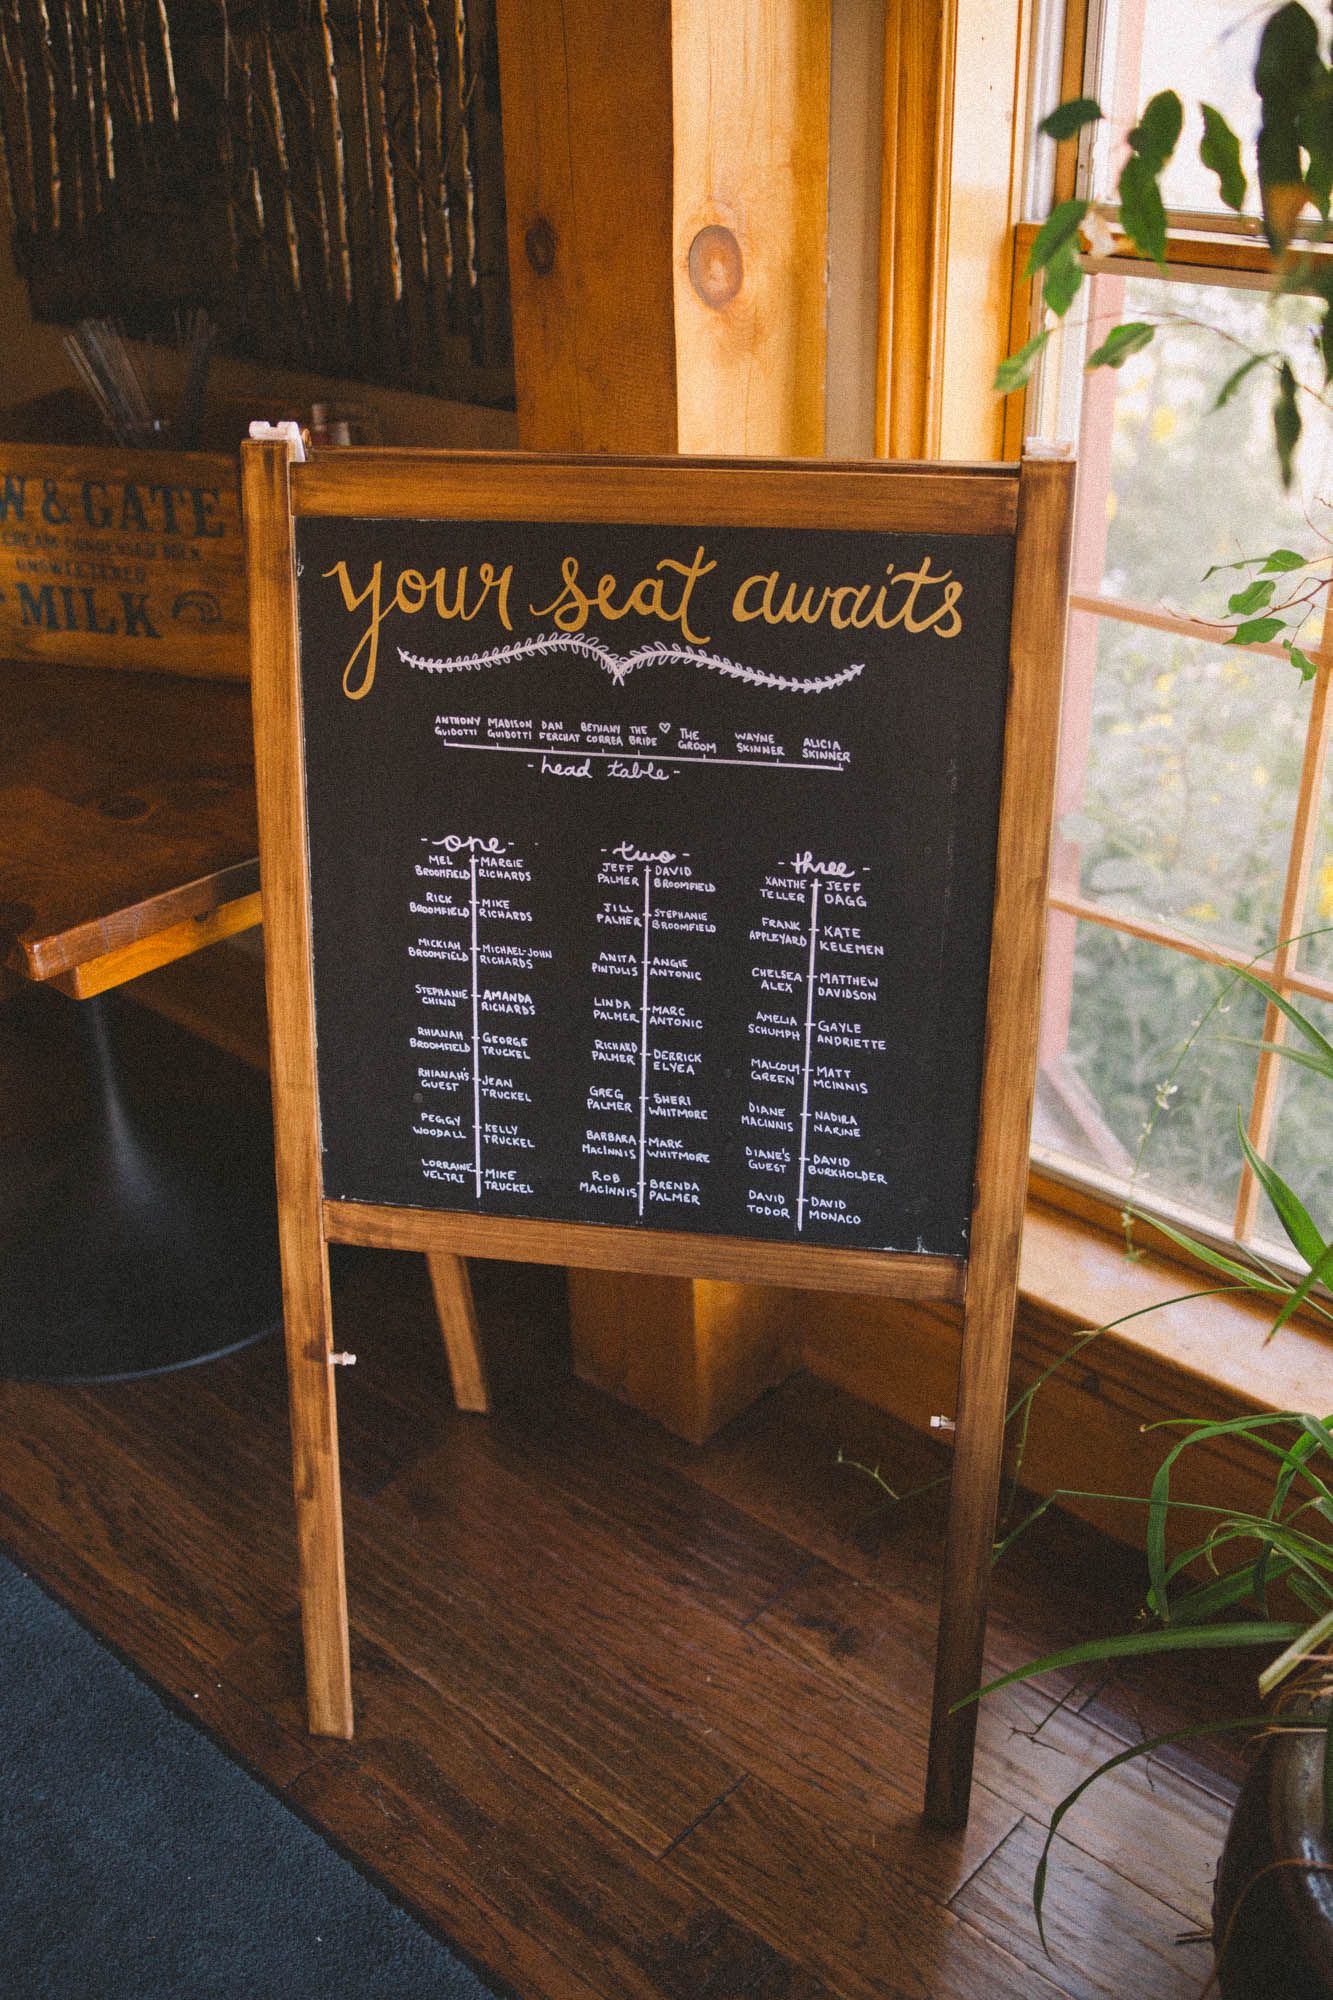 W & GATE
CREAM CONDENSED MILK
UNSWEETENED
MILK
your seat awaits
ANTHONY MADISON DAN BETHANY THE ♡ THE WAYNE ALICIA
GUIDOTTI GUIDOTTI FERCHAT CORREA BRIDE GROOM SKINNER SKINNER
- head table -
- one -
MEL MARGIE
BROOMFIELD RICHARDS
RICK MIKE
BROOMFIELD RICHARDS
MICKIAH MICHAEL-JOHN
BROOMFIELD RICHARDS
STEPHANIE AMANDA
CHINN RICHARDS
RHIANAH GEORGE
BROOMFIELD TRUCKEL
RHIANAH'S JEAN
GUEST TRUCKEL
PEGGY KELLY
WOODALL TRUCKEL
LORRAINE MIKE
VELTRI TRUCKEL
- two -
JEFF DAVID
PALMER BROOMFIELD
JILL STEPHANIE
PALMER BROOMFIELD
ANITA ANGIE
PINTULIS ANTONIC
LINDA MARC
PALMER ANTONIC
RICHARD DERRICK
PALMER ELYEA
GREG SHERI
PALMER WHITMORE
BARBARA MARK
MACINNIS WHITMORE
ROB BRENDA
MACINNIS PALMER
- three -
XANTHE JEFF
TELLER DAGG
FRANK KATE
APPLEYARD KELEMEN
CHELSEA MATTHEW
ALEX DAVIDSON
AMELIA GAYLE
SCHUMPH ANDRIETTE
MALCOLM MATT
GREEN MCINNIS
DIANE NADIRA
MACINNIS NARINE
DIANE'S DAVID
GUEST BURKHOLDER
DAVID DAVID
TODOR MONACO